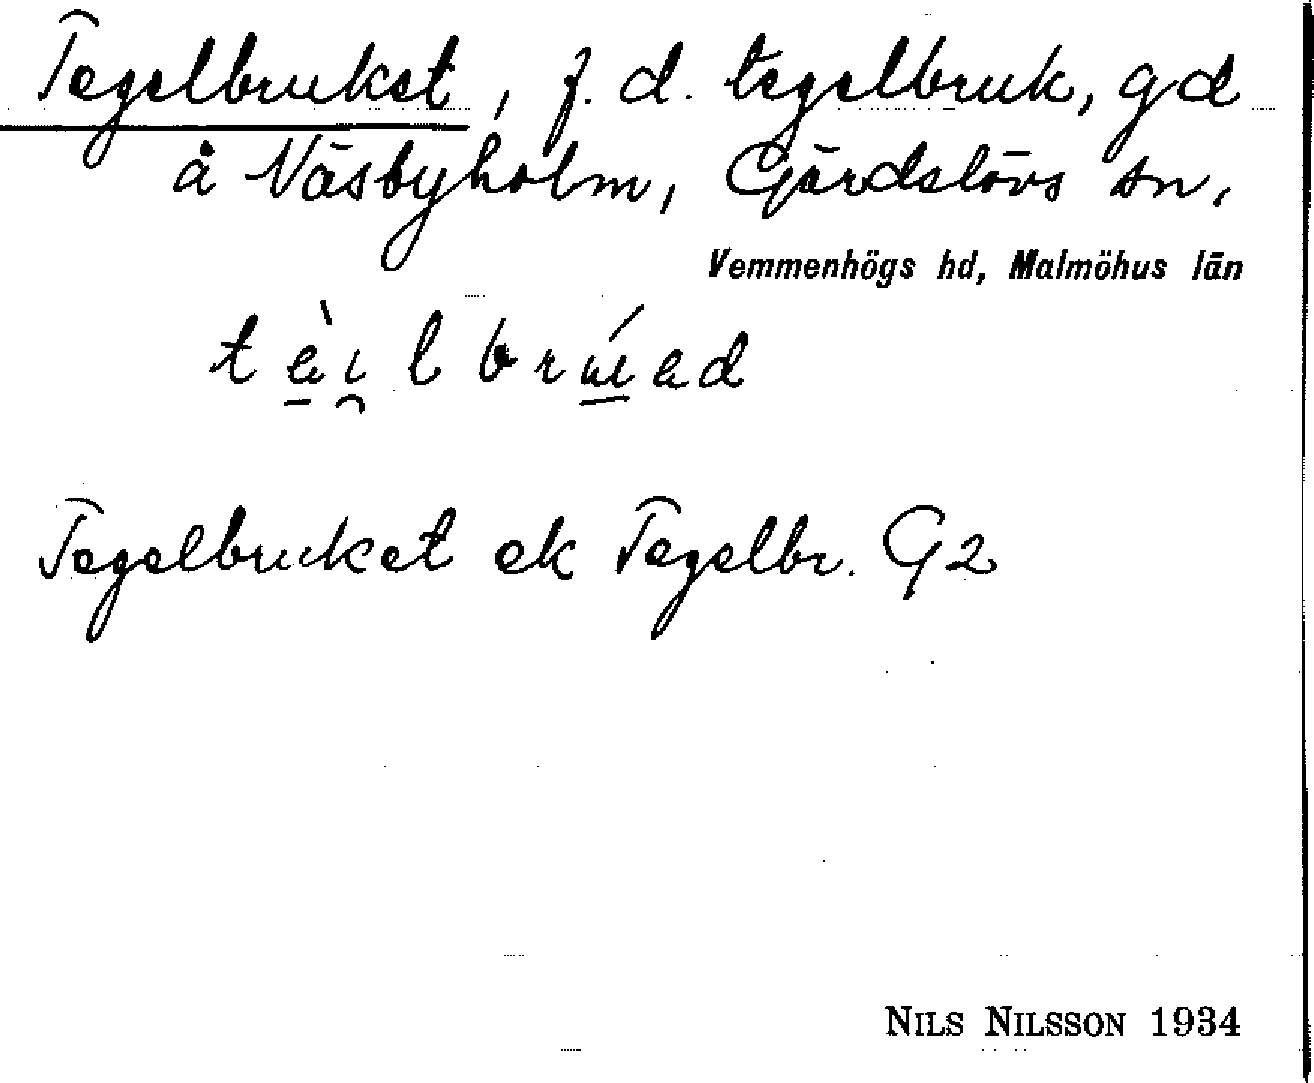 Tegelbruket, f. d. tegelbruk, gd
å Näsbyholm, Gärdslövs sn,
Vemmenhögs hd, Malmöhus län
Tegelbruket ek Tegelbr. G2
NILS NILSSON 1934